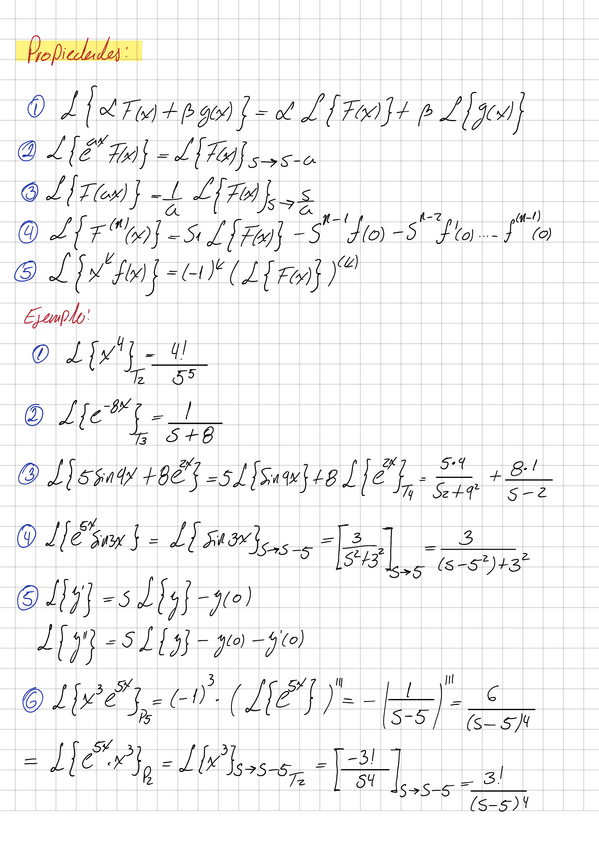 Propiedades:
① L{αF(x) + βg(x)} = α L{F(x)} + β L{g(x)}
② L{e^{ax} F(x)} = L{F(x)}_{S→S-a}
③ L{F(ax)} = \frac{1}{a} L{F(x)}_{S→\frac{s}{a}}
④ L{F^{(n)}(x)} = S_1 L{F(x)} - S^{n-1} f(0) - S^{n-2} f'(0) .... f^{(n-1)}(0)
⑤ L{x^k f(x)} = (-1)^k (L{F(x)})^{(k)}
Ejemplo:
① L{x^4}_{T2} = \frac{4!}{5^5}
② L{e^{-8x}}_{T3} = \frac{1}{S+8}
③ L{5 Sin 9x + 8e^{2x}} = 5 L{Sin 9x} + 8 L{e^{2x}}_{T4} = \frac{5·9}{S_2+9^2} + \frac{8·1}{S-2}
④ L{e^{5x} Sin 3x} = L{Sin 3x}_{S→S-5} = [\frac{3}{S^2+3^2}]_{S→5} = \frac{3}{(S-5^2)+3^2}
⑤ L{y'} = S L{y} - y(0)
L{y''} = S L{y} - y(0) - y'(0)
⑥ L{x^3 e^{5x}}_{P5} = (-1)^3 · (L{e^{5x}})^{'''} = -(\frac{1}{S-5})^{'''} = \frac{6}{(S-5)^4}
= L{e^{5x} · x^3}_{P2} = L{x^3}_{S→S-5_{T2}} = [\frac{-3!}{S4}]_{S→S-5} = \frac{3!}{(S-5)^4}